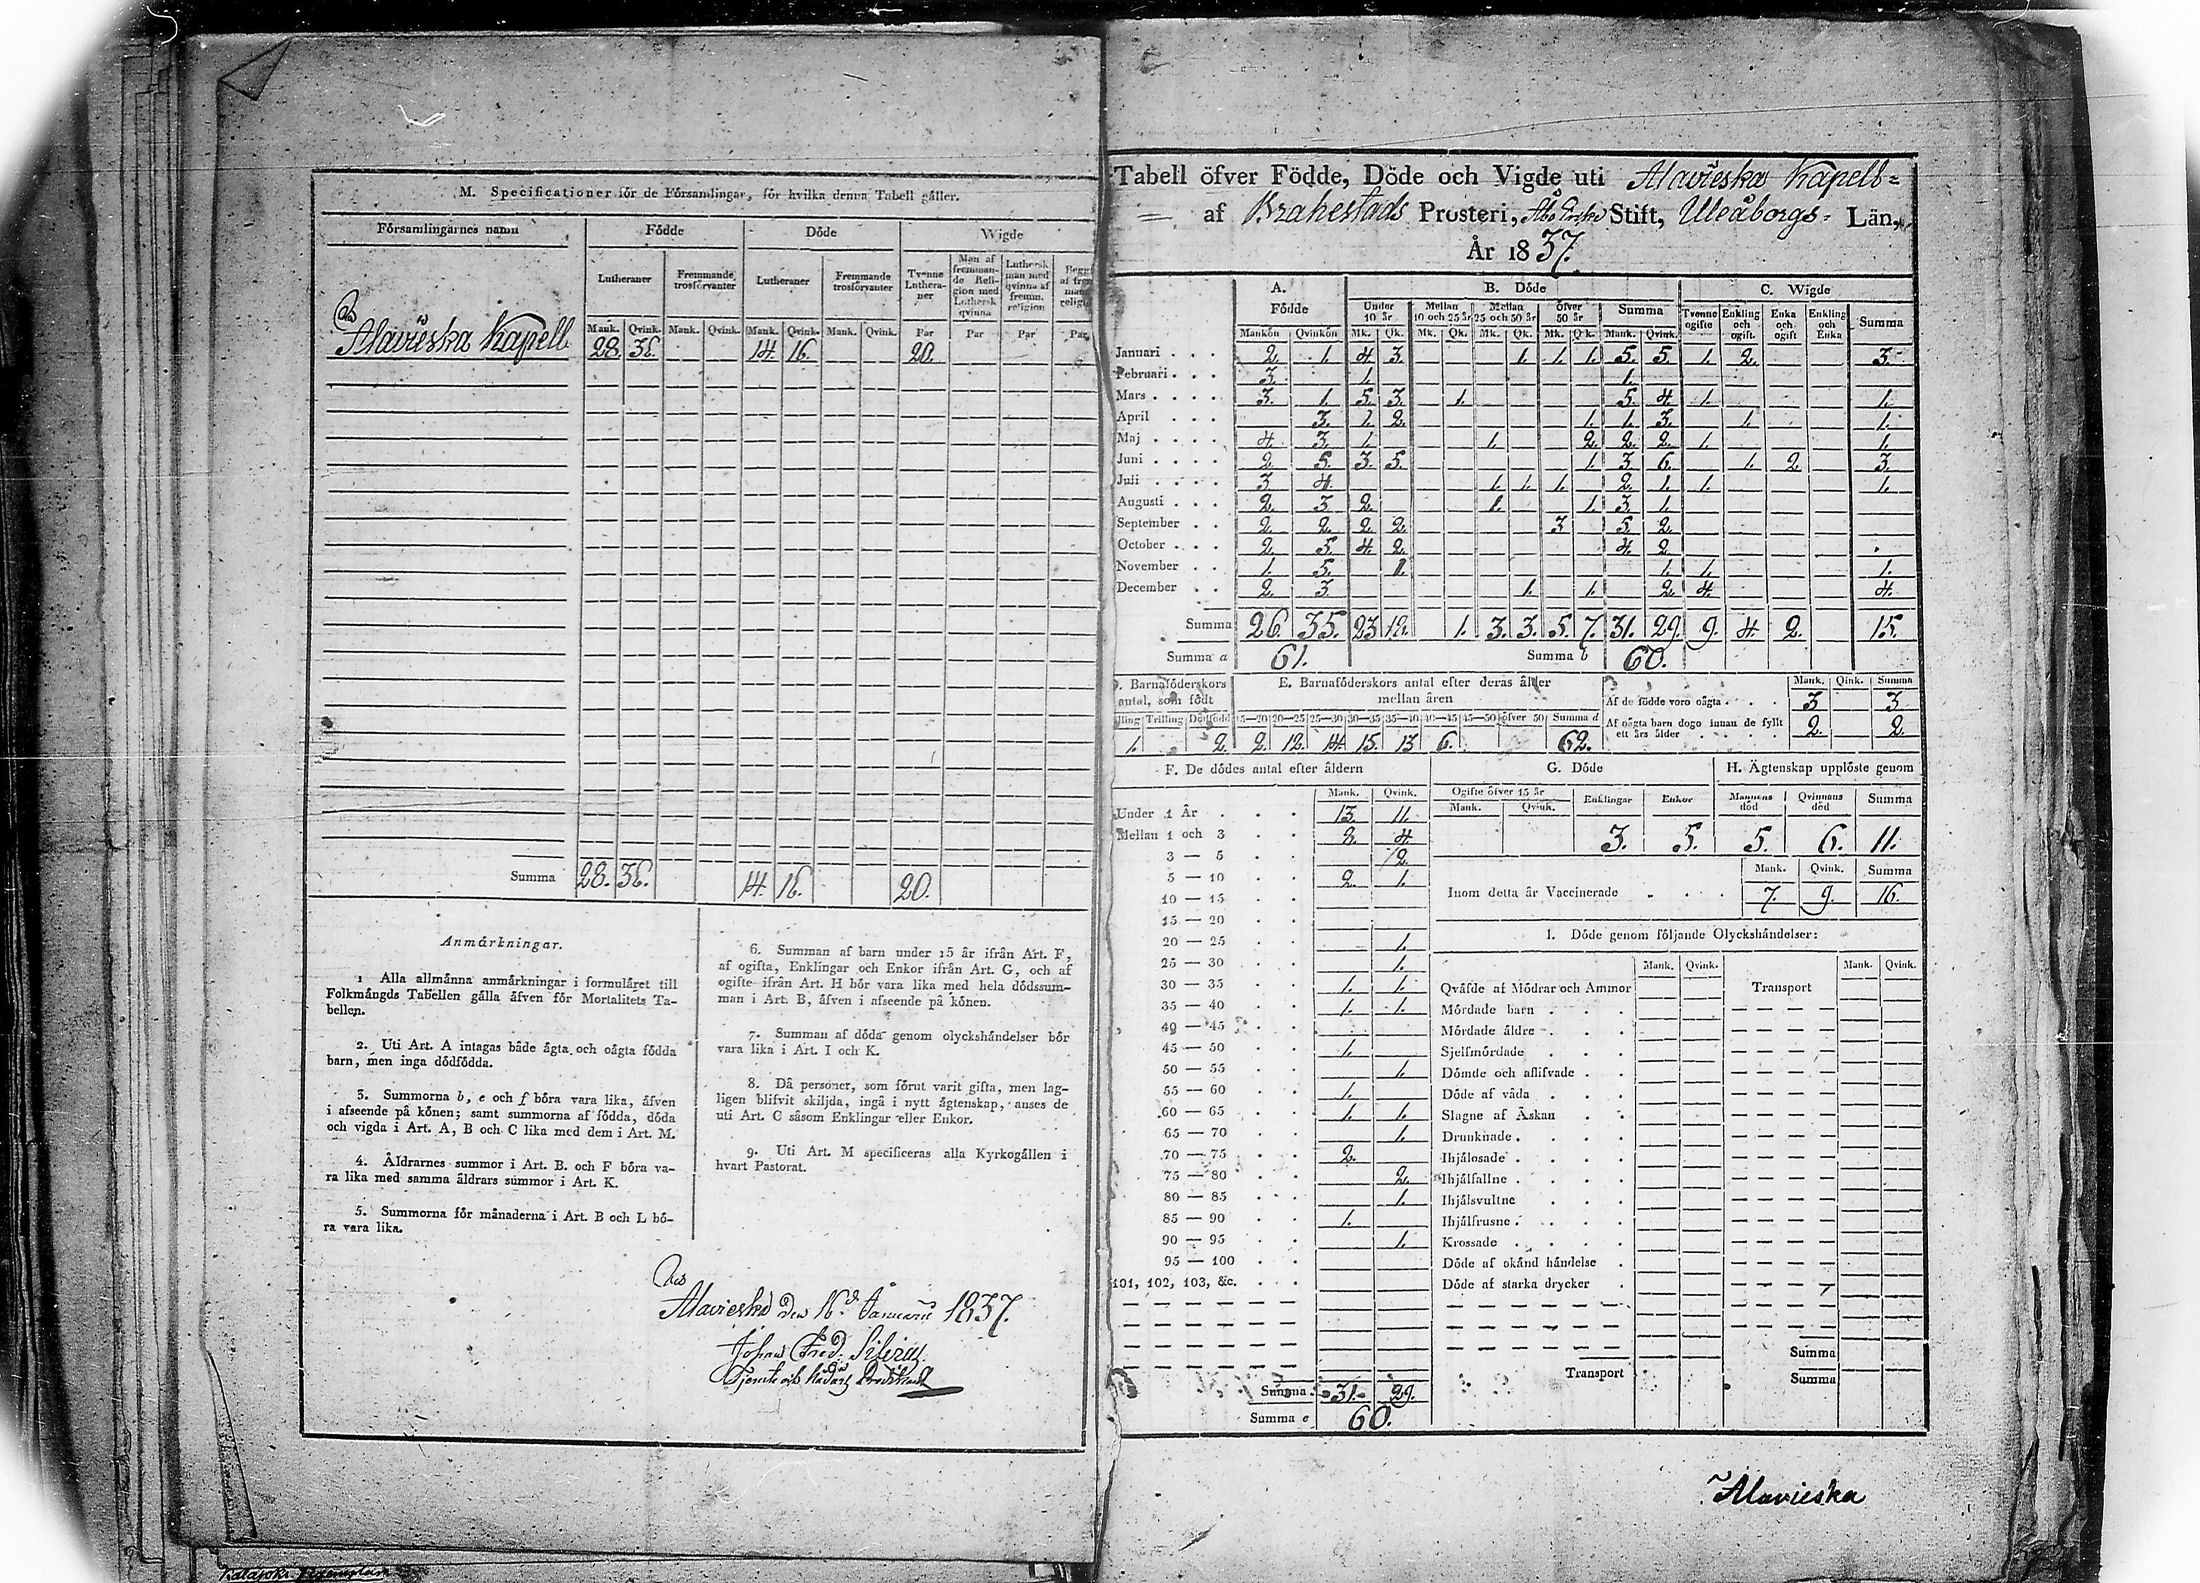 M. Specificationer för de Församlingar, för hvilka denna Tabell gäller.
Församlingarnes namn | Födde | Döde | Wigde
Lutheraner | Fremmande trosförvanter | Lutheraner | Fremmande trosförvanter | Tvenne Lutheraner | Man af fremmande Religion med Luthersk qvinna | Luthersk man med qvinna af fremm. religion
Mank. | Qvink. | Mank. | Qvink. | Mank. | Qvink. | Mank. | Qvink. | Par | Par | Par | Par
Alavieska Kapell | 28. | 36. | 14. | 16. | 20.
Summa | 28. | 36. | 14. | 16. | 20.
Anmärkningar.
1 Alla allmänna anmärkningar i formuläret till
Folkmängds Tabellen gälla äfven för Mortalitets Ta-
bellen.
2. Uti Art. A intagas både ägta och oägta födda
barn, men inga dödfödda.
3. Summorna b, e och f böra vara lika, äfven
i afseende på könen; samt summorna af födda, döda
och vigda i Art. A, B och C lika med dem i Art. M.
4. Åldrarnes summor i Art. B. och F böra va-
ra lika med samma åldrars summor i Art. K.
5. Summorna för månaderna i Art. B och L bö-
ra vara lika.
6. Summan af barn under 15 år ifrån Art. F,
af ogifta, Enklingar och Enkor ifrån Art. G, och af
ogifte ifrån Art. H bör vara lika med hela dödssum-
man i Art. B, äfven i afseende på könen.
7. Summan af döda genom olyckshändelser bör
vara lika i Art. I och K.
8. Då personer, som förut varit gifta, men lag-
ligen blifvit skiljda, ingå i nytt ägtenskap, anses de
uti Art. C såsom Enklingar eller Enkor.
9. Uti Art. M specificeras alla Kyrkogällen i
hvart Pastorat.
Alavieska den 16d Januarii 1837.
Johan Fred.
Tabell öfver Födde, Döde och Vigde uti Alavieska Kapell=
= af Brahestads Prosteri, Åbo Erke Stift, Uleåborgs= Län,
År 1837.
A. Födde | B. Döde | C. Wigde
Under 10 år | Mellan 10 och 25 år | Mellan 25 och 50 år | öfver 50 år | Summa | Tvenne ogifte | Enkling och ogift. | Enka och ogift | Enkling och Enka | Summa
Mankön | Qvinkön | Mk. | Qk. | Mk. | Qk. | Mk. | Qk. | Mk. | Qk. | Mank. | Qvink.
Januari . . . | 2. | 1. | 4. | 3. | 1. | 1. | 1. | 5. | 5. | 1. | 2. | 3.
Februari . . . | 3. | 1. | 1.
Mars . . . . | 3. | 1. | 5. | 3. | 1. | 5. | 4. | 1. | 1.
April . . . | 3. | 1. | 2. | 1. | 1. | 3. | 1. | 1.
Maj . . . . | 4. | 3. | 1. | 1. | 2. | 2. | 2. | 1. | 1.
Juni . . . . | 2. | 5. | 3. | 5. | 1. | 3. | 6. | 1. | 2. | 3.
Juli . . . . | 3. | 4. | 1. | 1. | 1. | 2. | 1. | 1. | 1.
Augusti . . . | 2. | 3. | 2. | 1. | 1. | 3. | 1.
September . . | 2. | 2. | 2. | 2. | 3 | 5. | 2.
October . . . | 2. | 5. | 4. | 2. | 4. | 2.
November . . | 1. | 5. | 1. | 1. | 1. | 1.
December . . | 2. | 3. | 1. | 1. | 2. | 4. | 4.
Summa | 26. | 35. | 23 | 18. | 1. | 3. | 3. | 5. | 7. | 31. | 29. | 9. | 4. | 2. | 15.
Summa a | 61. | Summa b | 60.
Barnaföderskors antal, som födt
Trilling | Dödfödd
1. | 2.
E. Barnaföderskors antal efter deras ålder mellan åren
15—20 | 20—25 | 25—30 | 30—35 | 35—40 | 40—45 | 45—50 | öfver 50 | Summa d
2. | 12. | 14. | 15. | 13 | 6. | 62.
Mank. | Qink. | Summa
Af de födde voro oägta . . . . | 3 | 3.
Af oägta barn dogo innan de fyllt ett års ålder . . . . . | 2. | 2.
F. De dödes antal efter åldern
Mank. | Qvink.
Under 1 År . . . | 13. | 11.
Mellan 1 och 3 . . | 2. | 4.
3 — 5 . . | 2.
5 — 10 . . | 2. | 1.
10 — 15 . .
15 — 20 . .
20 — 25 . . | 1.
25 — 30 . . | 1.
30 — 35 . . | 1. | 1.
35 — 40 . . | 1. | 1.
40 — 45 . .
45 — 50 . . | 1.
50 — 55 . . | 1.
55 — 60 . . | 1.
60 — 65 . . | 1. | 1.
65 — 70 . . | 1.
70 — 75 . . | 2.
75 — 80 . . | 2.
80 — 85 . . | 1.
85 — 90 . . | 1.
90 — 95 . . | 1.
95 — 100 . .
101, 102, 103, &c. . . .
Summa | 31. | 29.
Summa e | 60.
G. Döde
Ogifte öfver 15 år | Enklingar | Enkor
Mank. | Qvink.
3. | 5.
H. Ägtenskap upplöste genom
Mannens död | Qvinnans död | Summa
5. | 6. | 11.
Mank. | Qvink. | Summa
Inom detta år Vaccinerade . . . . | 7. | 9. | 16.
I. Döde genom följande Olyckshändelser:
Mank. | Qvink. | Mank. | Qvink.
Qväfde af Mödrar och Ammor | Transport
Mördade barn . . .
Mördade äldre . . .
Sjelfmördade . . .
Dömde och aflifvade . .
Döde af våda . . .
Slagne af Åskan . . .
Drunknade . . . .
Ihjälosade . . . .
Ihjälfallne . . . .
Ihjälsvultne . . .
Ihjälfrusne . . . .
Krossade . . . .
Döde af okänd händelse .
Döde af starka drycker .
Summa
Transport | Summa
Alavieska